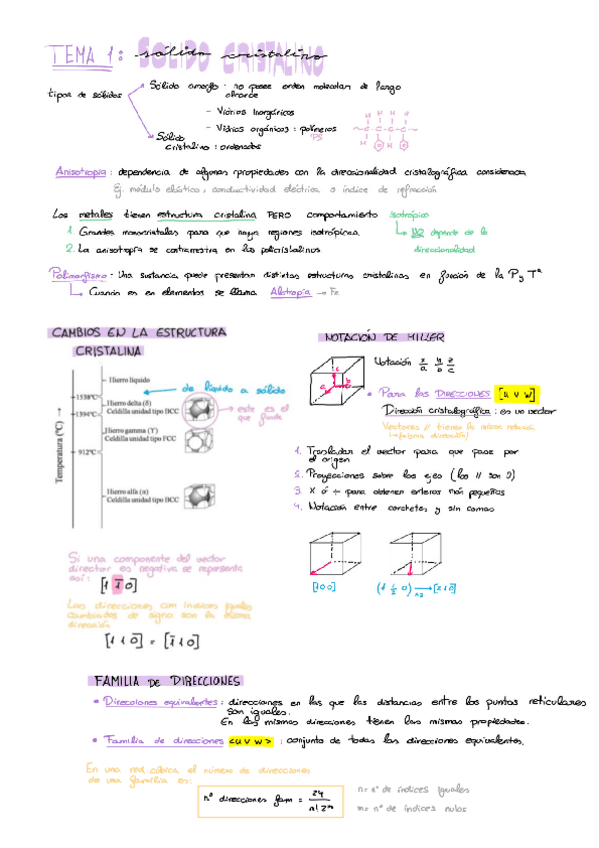 TEMA 1: sólido cristalino
SÓLIDO CRISTALINO
tipos de sólidos
Sólido amorfo: no posee orden molecular de largo
alcance
- Vidrios Inorgánicos
- Vidrios orgánicos: polímeros
PS
Sólido
cristalino: ordenados
H H H H
-C-C-C-C-
H H
Anisotropía: dependencia de algunas propiedades con la direccionalidad cristalográfica considerada
Ej. módulo elástico, conductividad eléctrica o índice de refracción
Los metales tienen estructura cristalina PERO comportamiento isotrópico
1. Grandes monocristales para que haya regiones isotrópicas.
2. La anisotropía se contrarresta en los policristalinos
NO depende de la
direccionalidad
Polimorfismo: Una sustancia puede presentar distintas estructuras cristalinas en función de la P y Tª
Cuando es en elementos se llama Alotropía → Fe
CAMBIOS EN LA ESTRUCTURA
CRISTALINA
Temperatura (ºC) →
Hierro líquido
de líquido a sólido
1538ºC
Hierro delta (δ)
Celdilla unidad tipo BCC
1394ºC
este es el
que funde
Hierro gamma (ϒ)
Celdilla unidad tipo FCC
912ºC
Hierro alfa (α)
Celdilla unidad tipo BCC
Si una componente del vector
director es negativa se representa
así: [1 1̄ 0]
Las direcciones con índices iguales
cambiados de signo son la misma
dirección
[1 1 0] = [1̄ 1 0]
NOTACIÓN DE MILLER
Notación x/a y/b z/c
• Para las DIRECCIONES [u v w]
Dirección cristalográfica: es un vector
Vectores // tienen la misma notación
(misma dirección)
1. Trasladar el vector para que pase por
el origen
2. Proyecciones sobre los ejes (los // son 0)
3. X ó ÷ para obtener enteros más pequeños
4. Notación entre corchetes y sin comas
[1 0 0]
(1 ½ 0) → [2 1 0]
x2
FAMILIA DE DIRECCIONES
• Direcciones equivalentes: direcciones en las que las distancias entre los puntos reticulares
son iguales.
En las mismas direcciones tienen las mismas propiedades.
• Familia de direcciones <u v w>: conjunto de todas las direcciones equivalentes.
En una red cúbica el número de direcciones
de una familia es:
nº direcciones fam = 24 / n! 2ᵐ
n = nº de índices iguales
m = nº de índices nulos